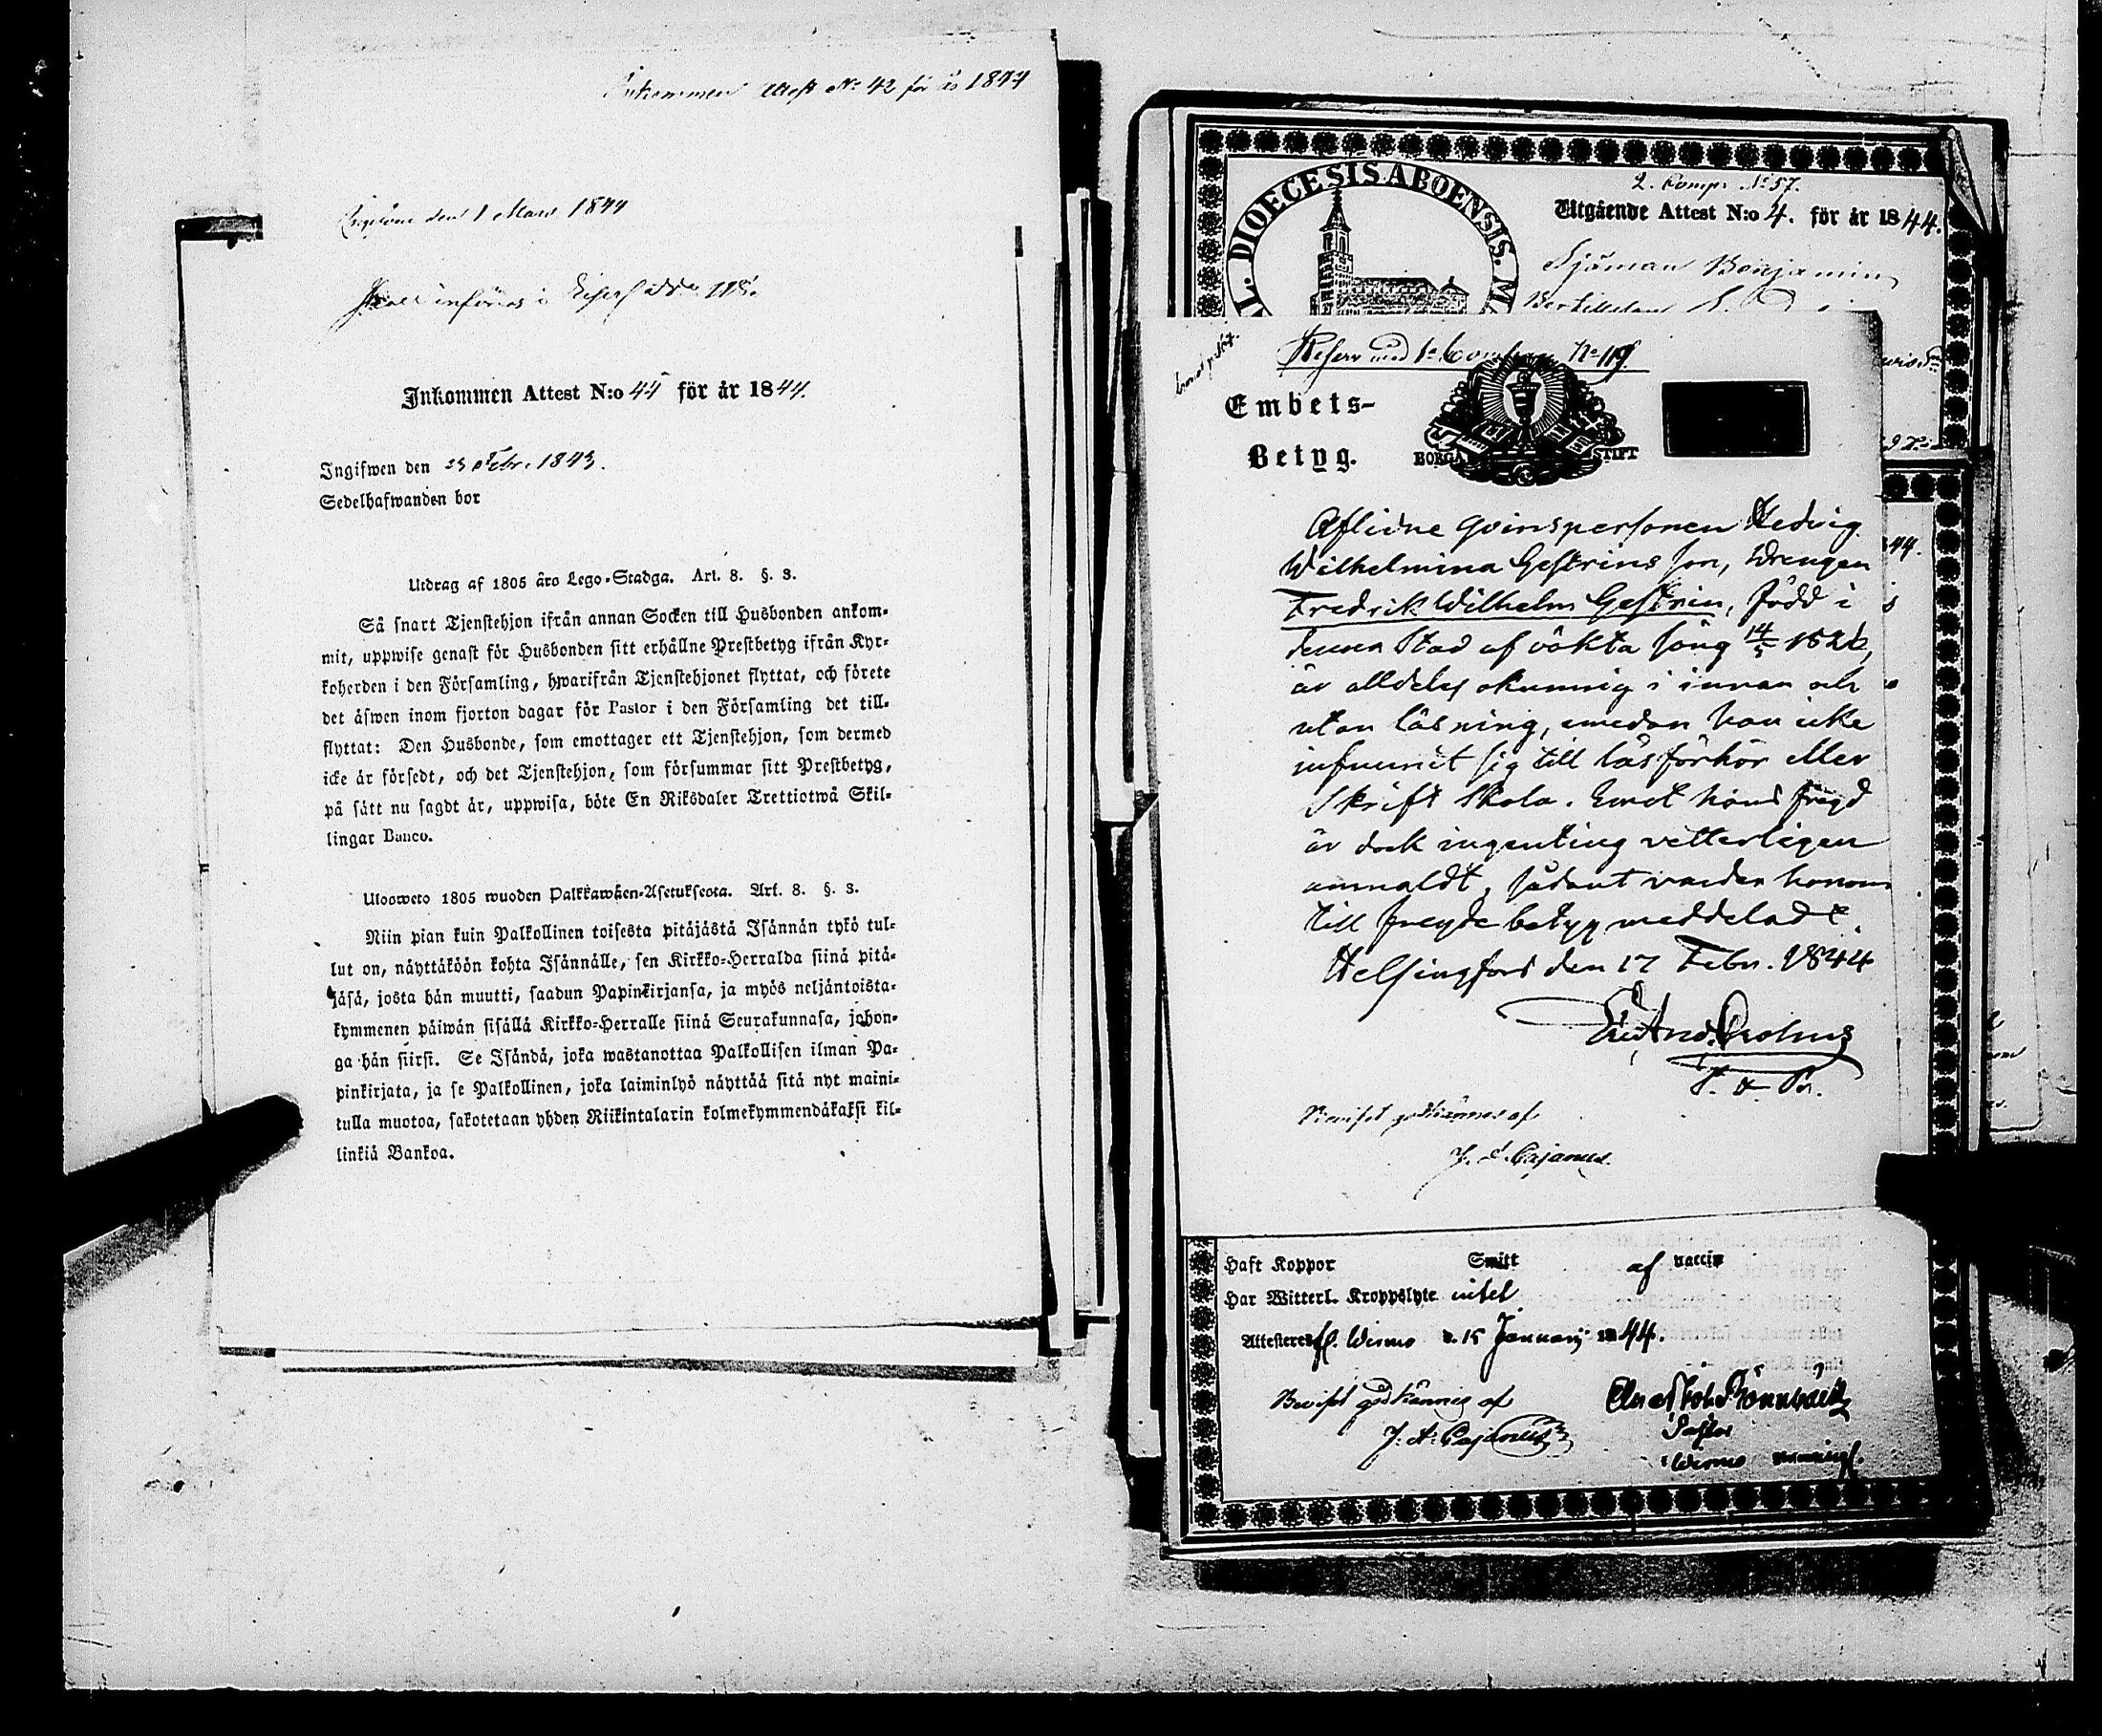 Inkommen Attest No 42 för år 1844
den 1 Mars 1844
införes i
Inkommen Attest N:o 44 för år 1844.
Ingifwen den 23 Febr. 1843.
Sedelhafwanden bor
Utdrag af 1805 års Lego-Stadga. Art. 8. §. 3.
Så snart Tjenstehjon ifrån annan Socken till Husbonden ankom-
mit, uppwise genast för Husbonden sitt erhållne Prestbetyg ifrån Kyr-
koherden i den Församling, hwarifrån Tjenstehjonet flyttat, och förete
det äfwen inom fjorton dagar för Pastor i den Församling det till-
flyttat: Den Husbonde, som emottager ett Tjenstehjon, som dermed
icke är försedt, och det Tjenstehjon, som försummar sitt Prestbetyg,
på sätt nu sagdt är, uppwisa, böte En Riksdaler Trettiotwå Skil-
lingar Banco.
Uloosweto 1805 wuoden Palkkawäen-Asetuksesta. Art. 8. §. 3.
Niin pian kuin Palkollinen toisesta pitäjästä Isännän tykö tul-
lut on, näyttäköön kohta Isännälle, sen Kirkko-Herralda siinä pitä-
jäsä, josta hän muutti, saadun Papinkirjansa, ja myös neljäntoista-
kymmenen päiwän sisällä Kirkko-Herralle siinä Seurakunnasa, johon-
ga hän siirsi. Se Isändä, joka wastanottaa Palkollisen ilman Pa-
pinkirjata, ja se Palkollinen, joka laiminlyö näyttää sitä nyt maini-
tulla muotoa, sakotetaan yhden Riikintalarin kolmekymmendäkaksi kil-
linkiä Bankoa.
DIOECESIS ABOENSIS.
2. Komp. No 57.
Utgående Attest N:o 4. för år 1844.
Sjöman Benjamin
Reserv med 1a Comp No 119
Embets-
Betyg.
BORGÅ STIFT
Aflidne qvinspersonen Hedvig
Wilhelmina Gestrins son, Drengen
Fredrik Wilhelm Gestrin, född i
denna Stad af oäkta säng 14/5 1826,
är alldeles okunnig i innan och
utan läsning, emedan han icke
infunnit sig till läsförhör eller
Skrift Skola. Emot hans frejd
är dock ingenting vetterligen
anmäldt, sådant varder honom
till frejde betyg meddeladt.
Helsingfors den 17 Febr. 1844
Beviset godkännes af
J. A. Cajanus.
Haft Koppor Smitt af vaccin
Har Witterl. Kroppslyte intet
Attesteres fl. Wirmo d. 15 Januarij 1844.
Beviset godkännes af
J. A. Cajanus
Pastor
Wirmo